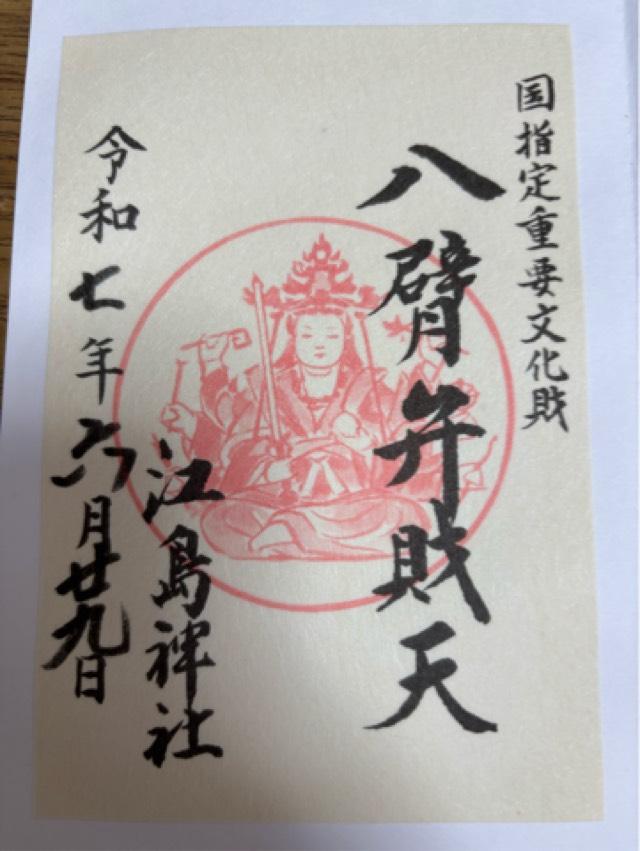 国指定重要文化財
八臂弁財天
江島神社
令和七年六月廿九日